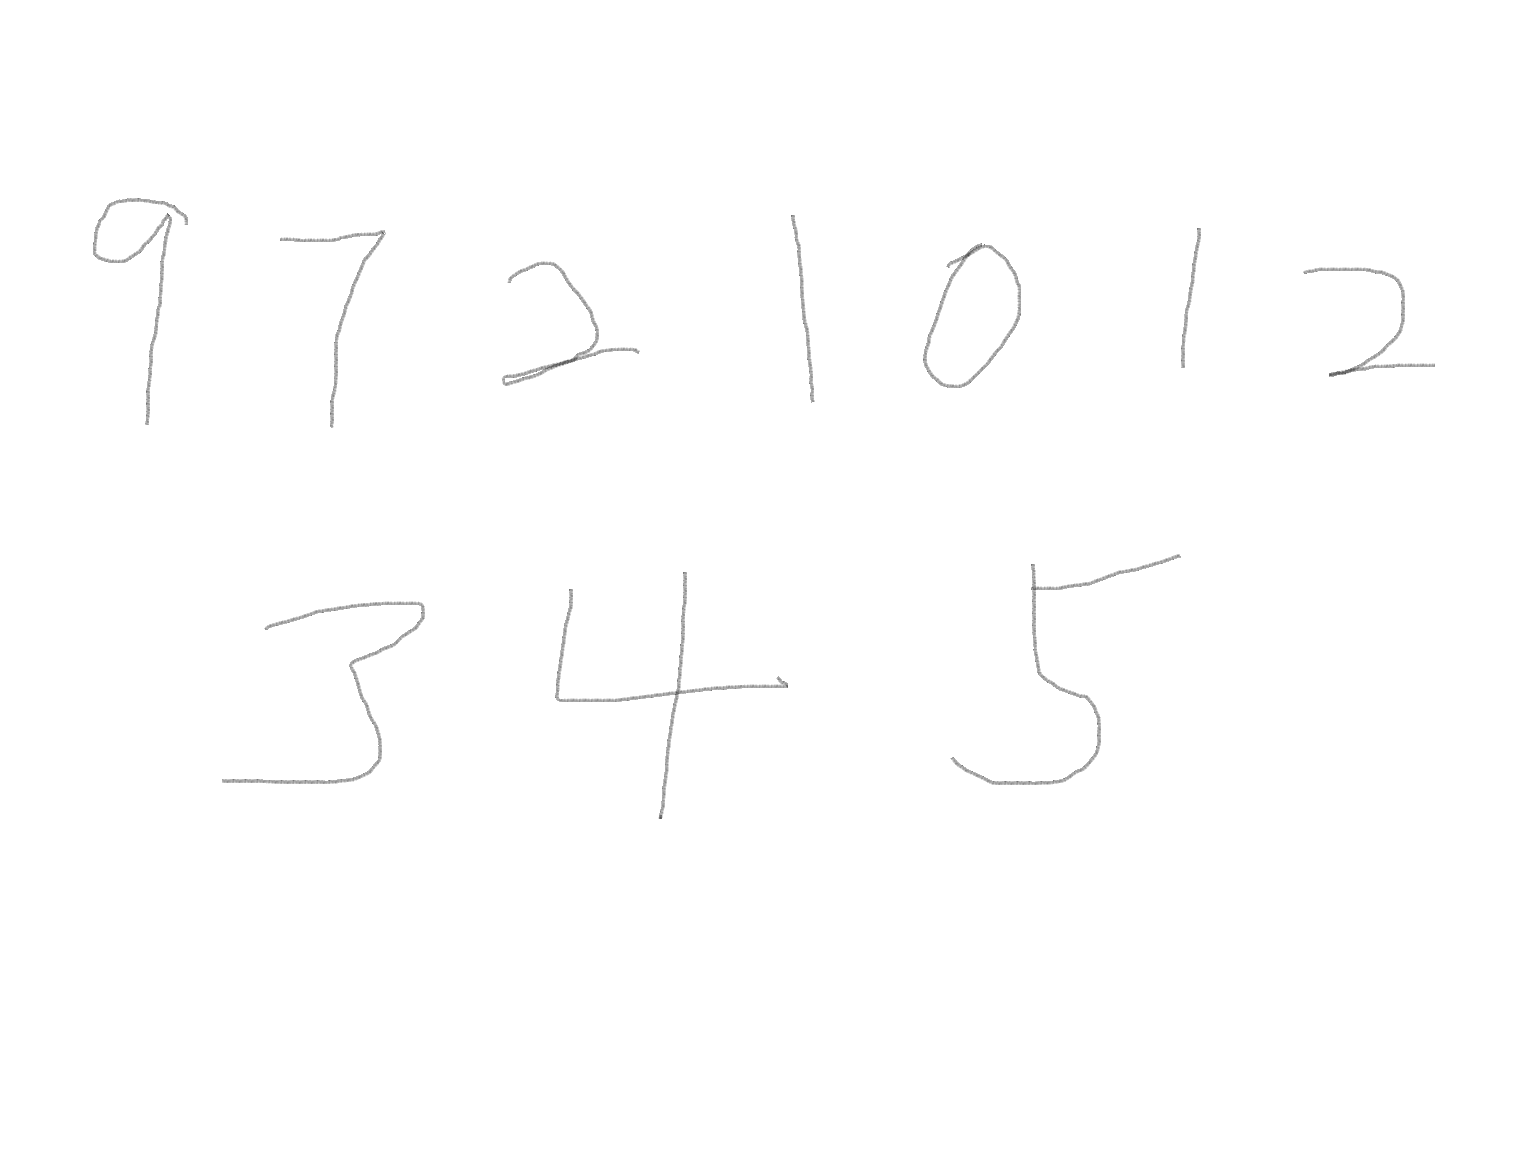 9721012
345